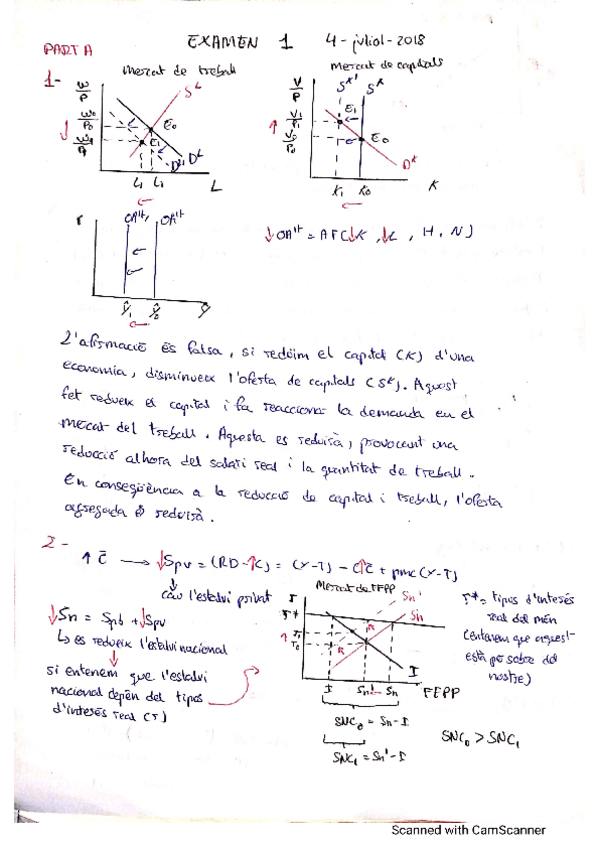 EXAMEN 1 4-juliol-2018
PART A
1-
Mercat de treball
Mercat de capitals
W/P
W0/P0
S^L
E0
E1
D^L' D^L
L1 L0
L
V/P
V1/P1
V0/P0
S^K' S^K
E1
E0
D^K
K1 K0
K
r
OA^lt' OA^lt
Ŷ1 Ŷ0
Ŷ
↓OA^lt = AF(↓K, ↓L, H, N)
L'afirmació és falsa, si reduim el capital (K) d'una
economia, disminueix l'oferta de capitals (S^K). Aquest
fet redueix el capital i fa reaccionar la demanda en el
mercat del treball. Aquesta es reduirà, provocant una
reducció alhora del salari real i la quantitat de treball.
En conseqüència a la reducció de capital i treball, l'oferta
agregada es reduirà.
2-
↑C̄ → ↓Spv = (RD-↑C) = (Y-T) - C↑C̄ + pmc(Y-T)
cau l'estalvi privat
↓Sn = Spb + ↓Spv
↳ es redueix l'estalvi nacional
si entenem que l'estalvi
nacional depèn del tipus
d'interès real (r)
Mercat de FFPP
r
r*
r1
r0
Sn'
Sn
I
I Sn' Sn
FFPP
SNC0 = Sn - I
SNC1 = Sn' - I
r* = tipus d'interès
real del món
(entenem que aquest
està per sobre del
nostre)
SNC0 > SNC1
Scanned with CamScanner